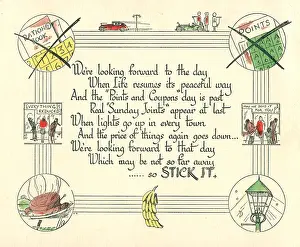 RATION BOOK
POINTS
We're looking forward to the day
When Life resumes its peaceful way
And the "Points and Coupons" day is past
Real "Sunday Joints" appear at last
When lights go up in every town
And the price of things again goes down...
We're looking forward to that day
Which may be not so far away
...... so STICK IT.
EVERYTHING
REDUCED